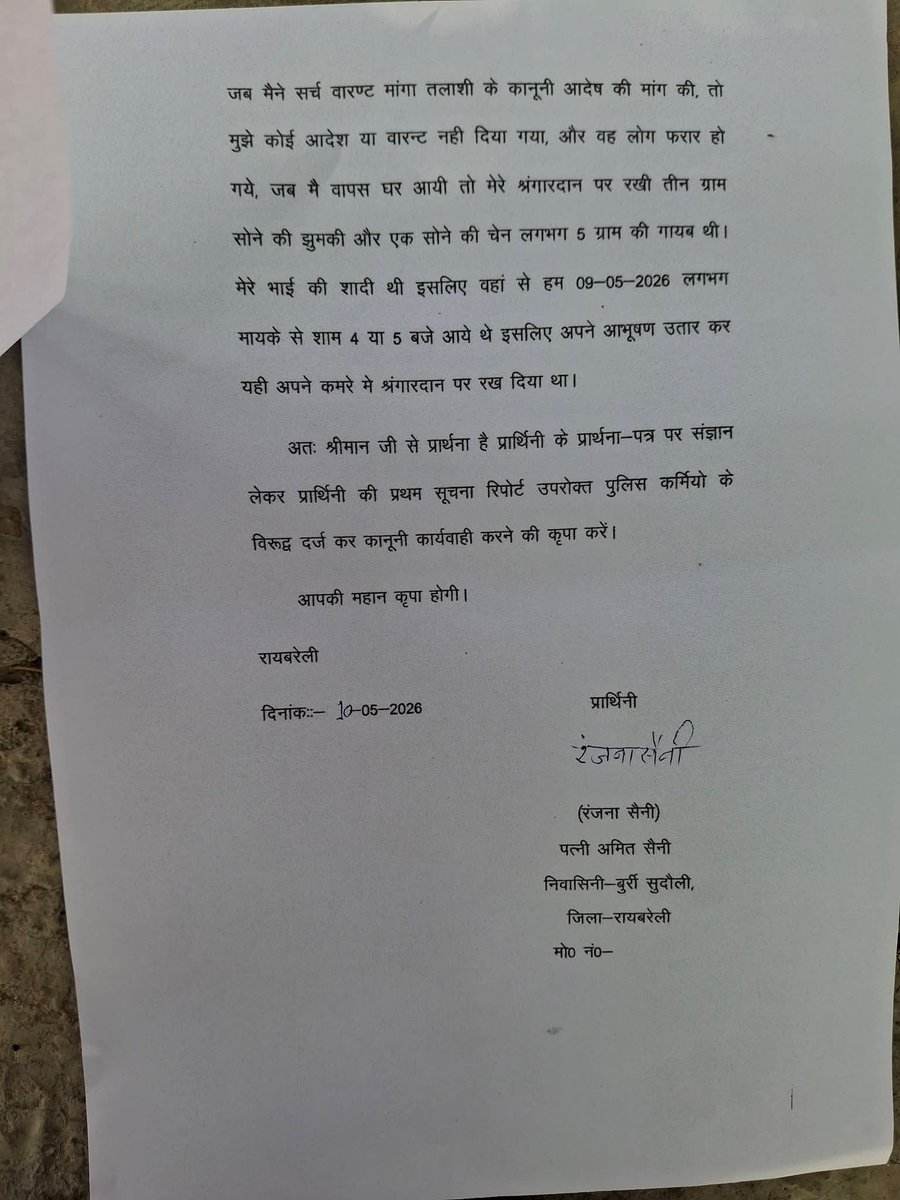 जब मैने सर्च वारण्ट मांगा तलाशी के कानूनी आदेष की मांग की, तो
मुझे कोई आदेश या वारन्ट नही दिया गया, और वह लोग फरार हो
गये, जब मै वापस घर आयी तो मेरे श्रंगारदान पर रखी तीन ग्राम
सोने की झुमकी और एक सोने की चेन लगभग 5 ग्राम की गायब थी।
मेरे भाई की शादी थी इसलिए वहां से हम 09–05–2026 लगभग
मायके से शाम 4 या 5 बजे आये थे इसलिए अपने आभूषण उतार कर
यही अपने कमरे मे श्रंगारदान पर रख दिया था।
अतः श्रीमान जी से प्रार्थना है प्रार्थिनी के प्रार्थना–पत्र पर संज्ञान
लेकर प्रार्थिनी की प्रथम सूचना रिपोर्ट उपरोक्त पुलिस कर्मियो के
विरूद्व दर्ज कर कानूनी कार्यवाही करने की कृपा करें।
आपकी महान कृपा होगी।
रायबरेली
दिनांकः:– 10–05–2026
प्रार्थिनी
रंजना सैनी
(रंजना सैनी)
पत्नी अमित सैनी
निवासिनी–बुर्री सुदौली,
जिला–रायबरेली
मो0 नं0–